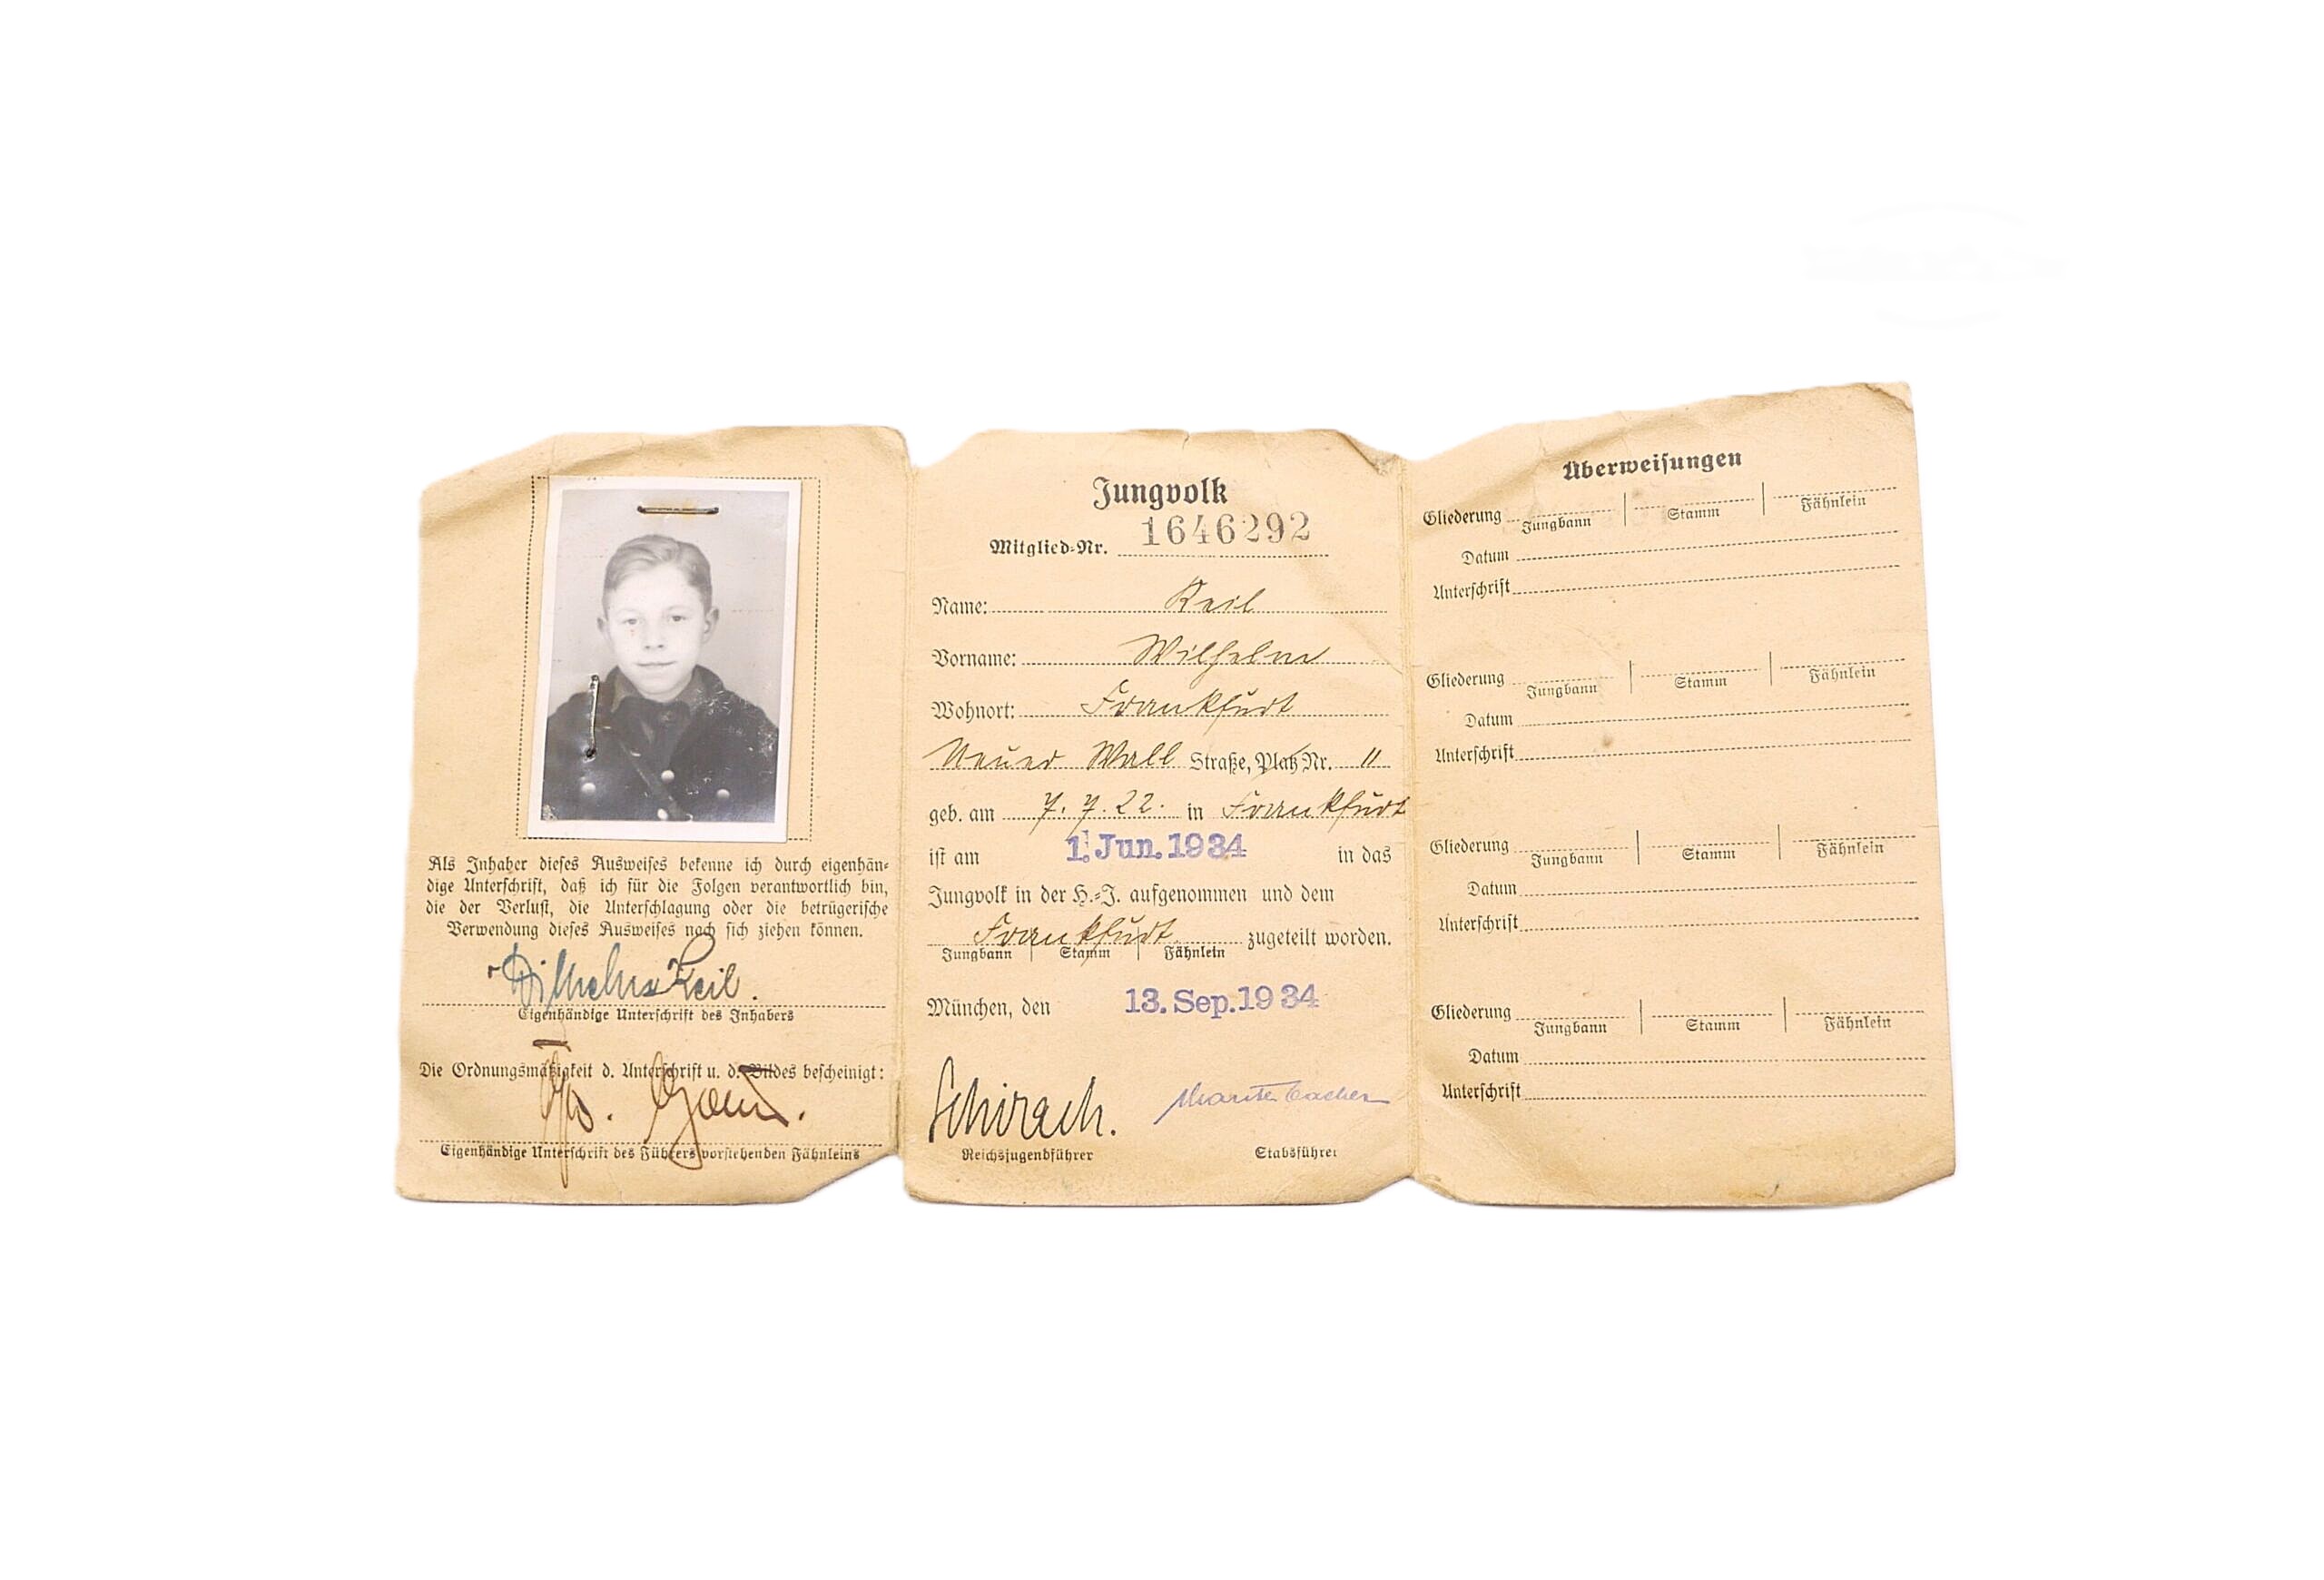 Als Inhaber dieses Ausweises bekenne ich durch eigenhän-
dige Unterschrift, daß ich für die Folgen verantwortlich bin,
die der Verlust, die Unterschlagung oder die betrügerische
Verwendung dieses Ausweises nach sich ziehen können.
Wilhelm Keil.
Eigenhändige Unterschrift des Inhabers
Die Ordnungsmäßigkeit d. Unterschrift u. d. Bildes bescheinigt:
Eigenhändige Unterschrift des Führers vorstehenden Fähnleins
Jungvolk
Mitglied-Nr. 1646292
Name: Keil
Vorname: Wilhelm
Wohnort: Frankfurt
Neuer Wall Straße, Platz Nr. 11
geb. am 7. 7. 22. in Frankfurt
ist am 1. Jun. 1934 in das
Jungvolk in der H.-J. aufgenommen und dem
Frankfurt zugeteilt worden.
Jungbann Stamm Fähnlein
München, den 13. Sep. 1934
Schirach.
Reichsjugendführer Stabsführer
Überweisungen
Gliederung
Jungbann Stamm Fähnlein
Datum
Unterschrift
Gliederung
Jungbann Stamm Fähnlein
Datum
Unterschrift
Gliederung
Jungbann Stamm Fähnlein
Datum
Unterschrift
Gliederung
Jungbann Stamm Fähnlein
Datum
Unterschrift